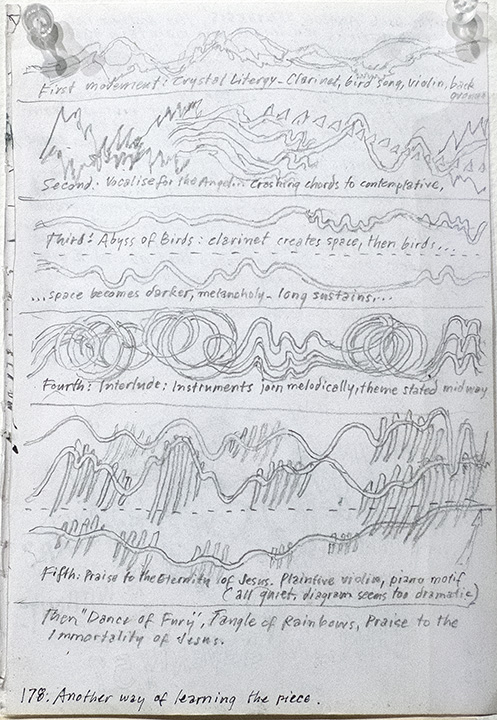 First movement: Crystal Litergy - Clarinet, bird song, violin, back
ground
Second: Vocalise for the Angel... Crashing chords to contemplative,
Third: Abyss of Birds: clarinet creates space, then birds...
...space becomes darker, melancholy - long sustains...
Fourth: Interlude: Instruments join melodically, theme stated midway
Fifth: Praise to the Eternity of Jesus. Plaintive violin, piano motif
(all quiet, diagram seems too dramatic)
Then "Dance of Fury", Tangle of Rainbows, Praise to the
Immortality of Jesus.
178: Another way of learning the piece.